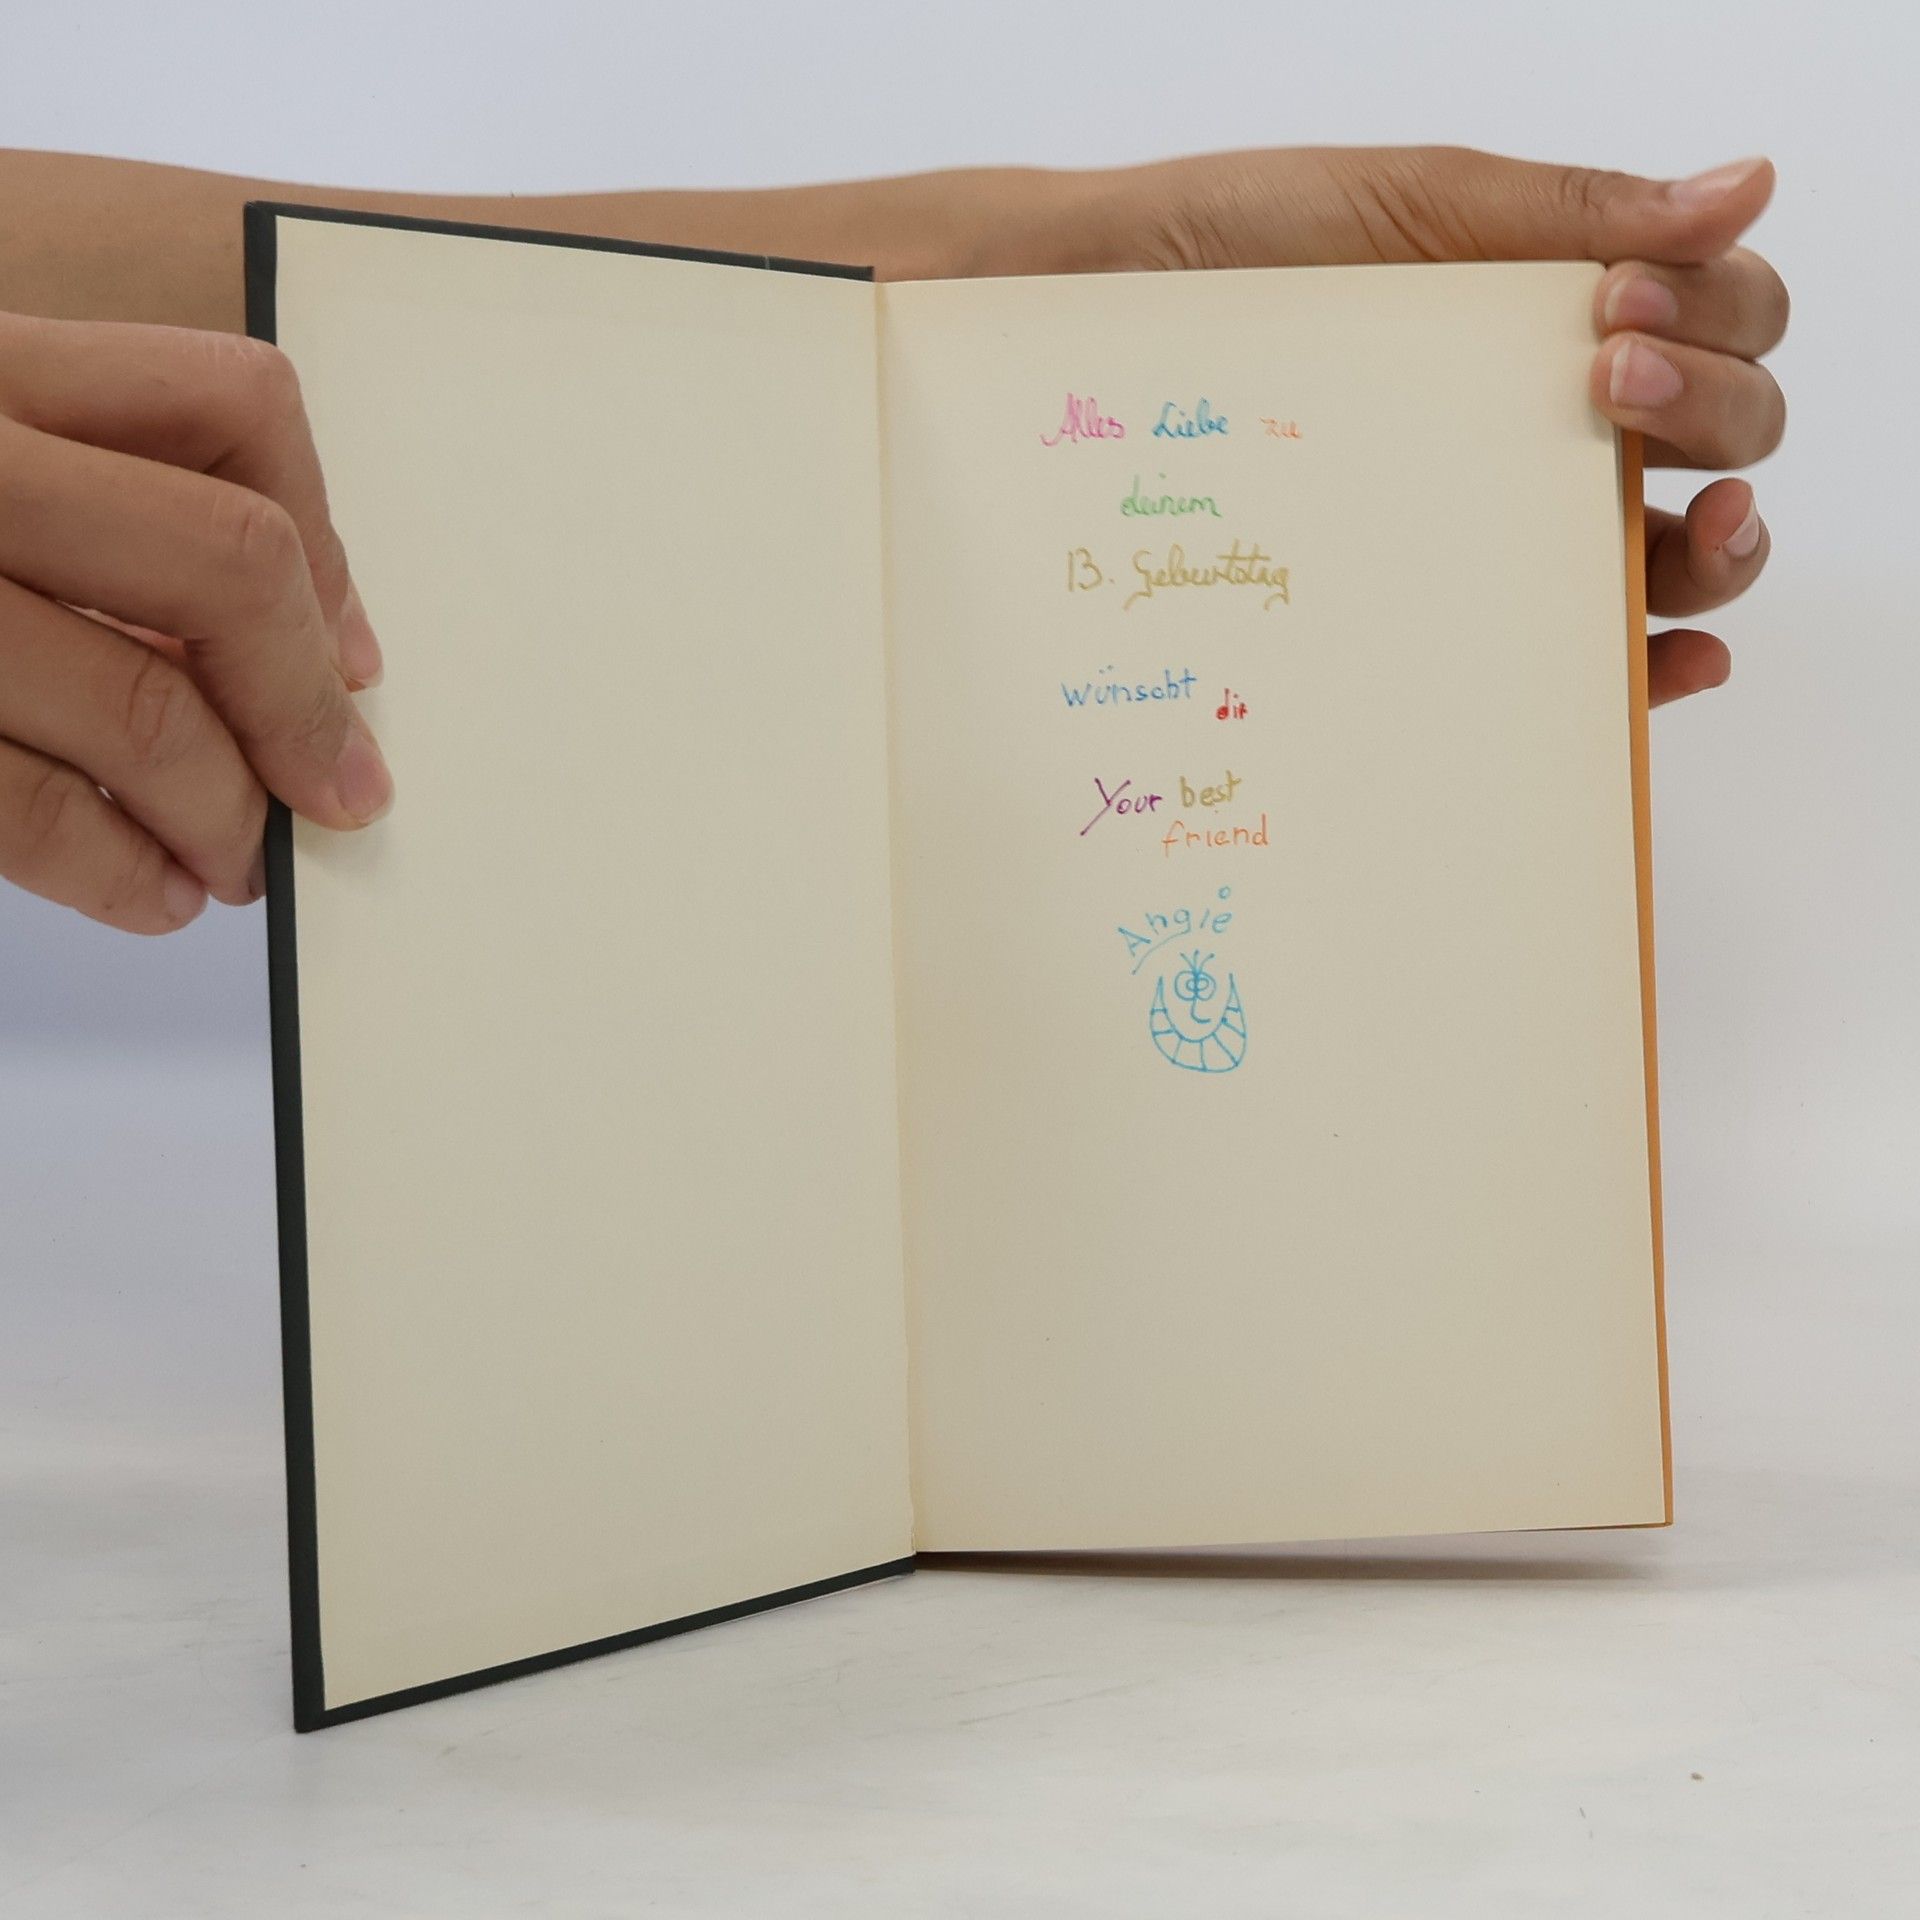 Alles Liebe zu
deinem
13. Geburtstag
wünscht dir
Your best
friend
Angie